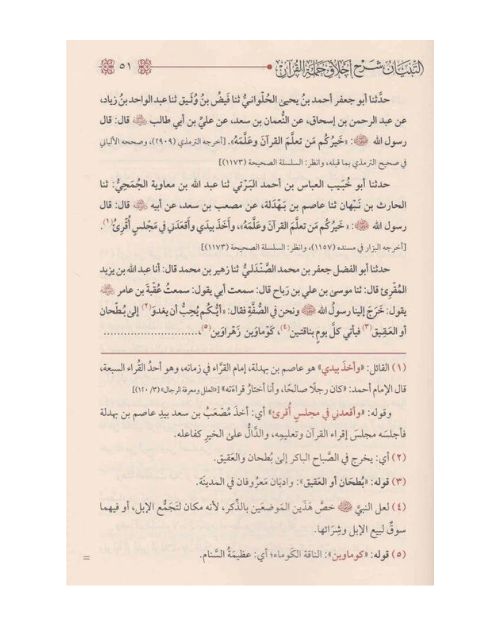 التبيان شرح أخلاق حملة القرآن ٥١
حدَّثنا أبو جعفر أحمد بنُ يحيىٰ الحُلْوانيُّ ثنا فَيْضُ بنُ وُثَيقٍ ثنا عبد الواحد بنُ زياد،
عن عبد الرحمن بنِ إسحاق، عن النُّعمان بنِ سعد، عن عليِّ بنِ أبي طالب ﷺ قال: قال
رسول الله ﷺ: «خَيرُكُم مَن تَعلَّمَ القرآنَ وعَلَّمَهُ». [أخرجه الترمذي (٢٩٠٩)، وصححه الألباني
في صحيح الترمذي بما قبله، وانظر: السلسلة الصحيحة (١١٧٣)]
حدثنا أبو خُبَيب العباس بن أحمد البَرْتي ثنا عبد الله بن معاوية الجُمَحِيُّ ثنا
الحارث بن نَبْهان ثنا عاصم بن بَهْدَلة، عن مصعب بن سعد، عن أبيه ﷺ قال: قال
رسول الله ﷺ: «خَيرُكُم مَن تَعلَّمَ القرآنَ وعَلَّمَهُ»، وأخَذَ بيدي وأقعَدَني في مَجْلِسٍ أُقْرِئُ(١).
[أخرجه البزار في مسنده (١١٥٧)، وانظر: السلسلة الصحيحة (١١٧٣)]
حدثنا أبو الفضل جعفر بن محمد الصَّنْدَليُّ ثنا زهير بن محمد قال: أنا عبد الله بن يزيد
المُقْرِئُ قال: ثنا موسىٰ بن علي بن رباح قال: سمعت أبي يقول: سمعتُ عُقْبَةَ بن عامر ﷺ
يقول: خَرَجَ إلينا رسولُ الله ﷺ ونحن في الصُّفَّةِ فقال: «أيُّكُم يُحِبُّ أن يَغدوَ(٢) إلىٰ بُطْحَان
أو العَقِيق(٣) فيأتي كلَّ يومٍ بناقتين(٤)، كَوْماوَينِ زَهْراوَينِ(٥)،
(١) القائل: «وأخذ بيدي» هو عاصم بن بهدلة، إمام القرَّاء في زمانه، وهو أحدُ القُراء السبعة،
قال الإمام أحمد: «كان رجلًا صالحًا، وأنا أختارُ قراءتَه» [«العلل ومعرفة الرجال» (٣/ ١٢٠)]
وقوله: «وأقعدني في مجلسٍ أُقرئ» أي: أخذ مُصْعَبُ بن سعد بيدِ عاصم بن بهدلة
فأجلسَه مجلسَ إقراء القرآن وتعليمِه، والدَّالُّ علىٰ الخيرِ كفاعلِه.
(٢) أي: يخرج في الصَّباح الباكر إلىٰ بُطحان والعَقيق.
(٣) قوله: «بُطْحان أو العَقيق»: واديان مَعرُوفان في المدينَة.
(٤) لعل النبيَّ ﷺ خصَّ هَذَينِ الموضعَين بالذِّكر، لأنه مكان لتَجمُّعِ الإبل، أو فيهما
سوقٌ لبيع الإبل وشِرَائها.
(٥) قوله: «كوماوين»: الناقة الكَوماء؛ أي: عظيمَةُ السَّنام.
=